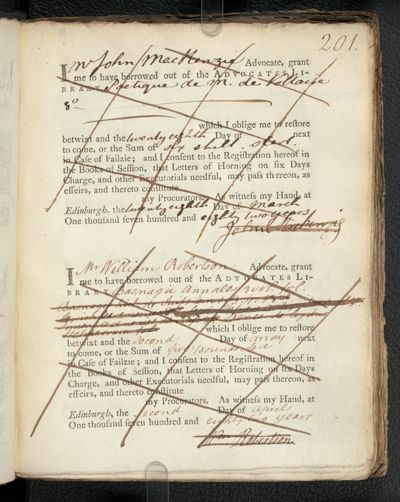 201.
I Mr John MacKenzie Advocate, grant
me to have borrowed out of the ADVOCATES LI-
BRARY Poetique de M. de Voltaire
8o
which I oblige me to restore
betwixt and the twenty eighth Day of next
to come, or the Sum of six shill. sterl.
in Case of Failzie; and I consent to the Registration hereof in
the Books of Session, that Letters of Horning on six Days
Charge, and other Executorials needful, may pass thereon, as
effeirs, and thereto constitute
my Procurators. As witness my Hand, at
Edinburgh, the twenty eighth Day of March
One thousand seven hundred and eighty two years
John MacKenzie
I Mr William Robertson Advocate, grant
me to have borrowed out of the ADVOCATES LI-
BRARY Annales
which I oblige me to restore
betwixt and the second Day of May next
to come, or the Sum of
in Case of Failzie; and I consent to the Registration hereof in
the Books of Session, that Letters of Horning on six Days
Charge, and other Executorials needful, may pass thereon, as
effeirs, and thereto constitute
my Procurators. As witness my Hand, at
Edinburgh, the second Day of April
One thousand seven hundred and eighty two years
Wm Robertson